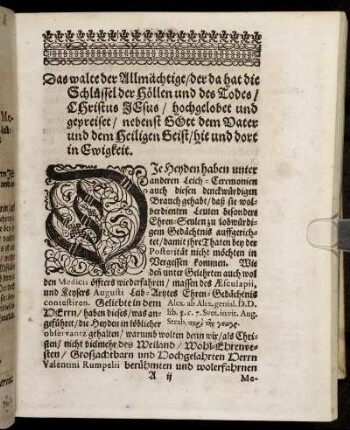 Das walte der Allmächtige/der da hat die
Schlüssel der Höllen und des Todes/
CHristus JEsus/ hochgelobet und
gepreiset/ nebenst GOtt dem Vater
und dem Heiligen Geist/hie und dort
in Ewigkeit.
DIe Heyden haben unter
anderen Leich-Ceremonien
auch diesen denckwürdigen
Brauch gehabt/daß sie wol-
verdienten Leuten besondere
Ehren-Seulen zu lobwürdi-
gem Gedächtnis auffgerich-
tet/damit ihre Thaten bey der
Posterität nicht möchten in
Vergessen kommen. Wie
den̄ unter Gelehrten auch wol
den Medicis öffters wiederfahren/ massen des Æsculapii,
und Keysers Augusti Leib-Artztes Ehren-Gedächtnis
contestiren. Geliebte in dem
HErrn/haben dieses/was an-
geführet/die Heyden in löblicher
observantz gehalten/warumb wolten denn wir/als Chri-
sten/nicht vielmehr des Weiland/ Wohl-Ehrenve-
sten/ Großachtbarn und Hochgelahrten Herrn
Valentini Rumpelii berühmten und wolerfahrnen
Alex. ab Alex. genial. D.D.
lib. 5. c. 7. Svet. in vit. Aug.
Strab.
A ij
Me-